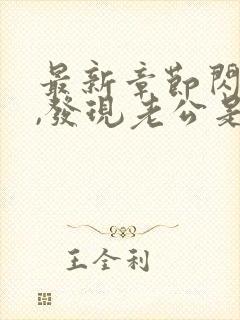 最新章節閃
,發現老公是
王全利